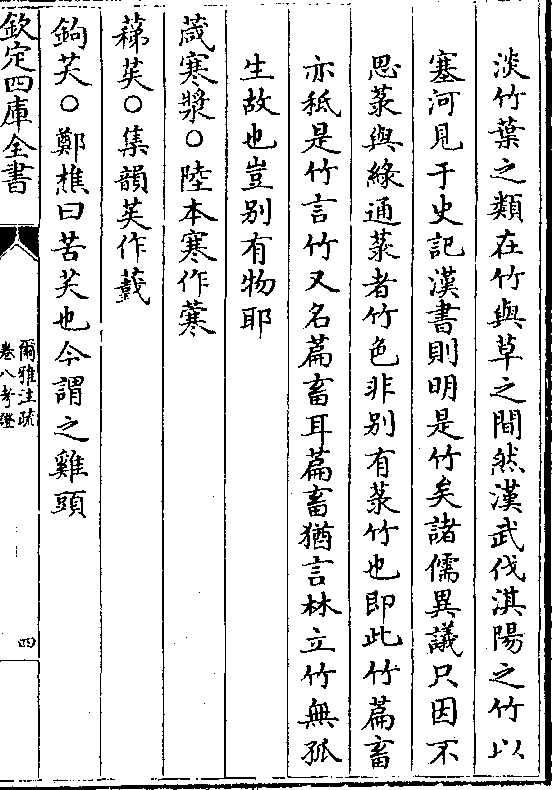 淡竹葉之類在竹與草之間然漢武伐淇陽之竹以
塞河見于史記漢書則明是竹矣諸儒異議只因不
思菉與綠通菉者竹色非别有菉竹也即此竹萹畜
亦秪是竹言竹又名萹畜耳萹畜猶言林立竹無孤
生故也豈别有物耶
葴寒漿○陸本寒作䕾
蕛苵○集韻苵作䕈
鉤芺○鄭樵曰苦芺也今謂之雞頭
欽定四庫全書
爾雅注疏
卷八考證
四